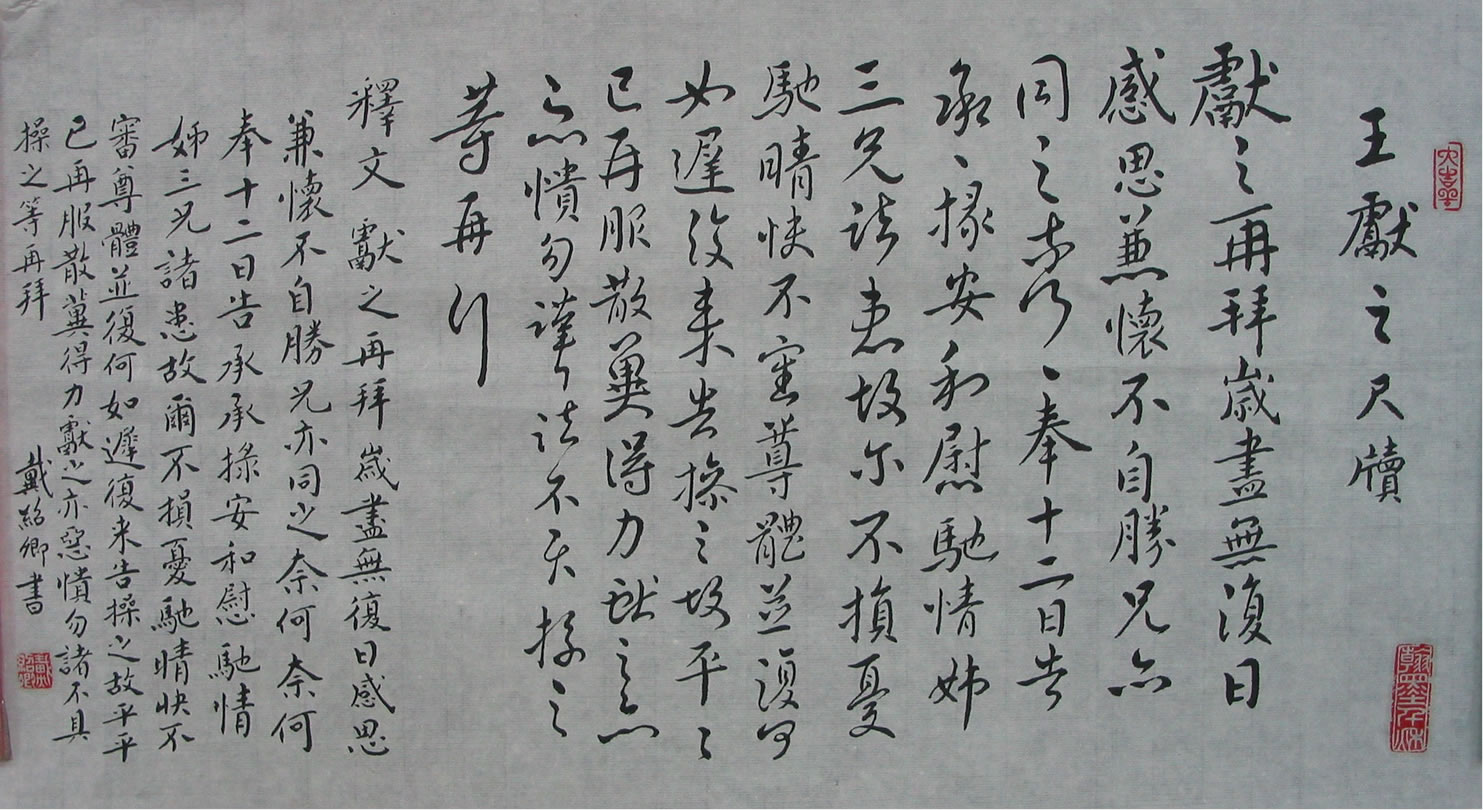 王獻之尺牘
獻之再拜歲盡無復日
感思兼懷不自勝兄亦
同之奈何〻奉十二日告
承〻掾安和慰馳情姊
三兄諸患故尔不損憂
馳晴快不審尊體並復何
如遲復来告操之故平〻
已再服散冀得力献之亦
惡憒勿謹諸不具操之
等再拜
釋文 獻之再拜歲盡無復日感思
兼懷不自勝兄亦同之奈何奈何
奉十二日告承承掾安和慰馳情
姊三兄諸患故爾不損憂馳情快不
審尊體並復何如遲復来告操之故平平
已再服散冀得力獻之亦惡憒勿諸不具
操之等再拜
戴紹卿書